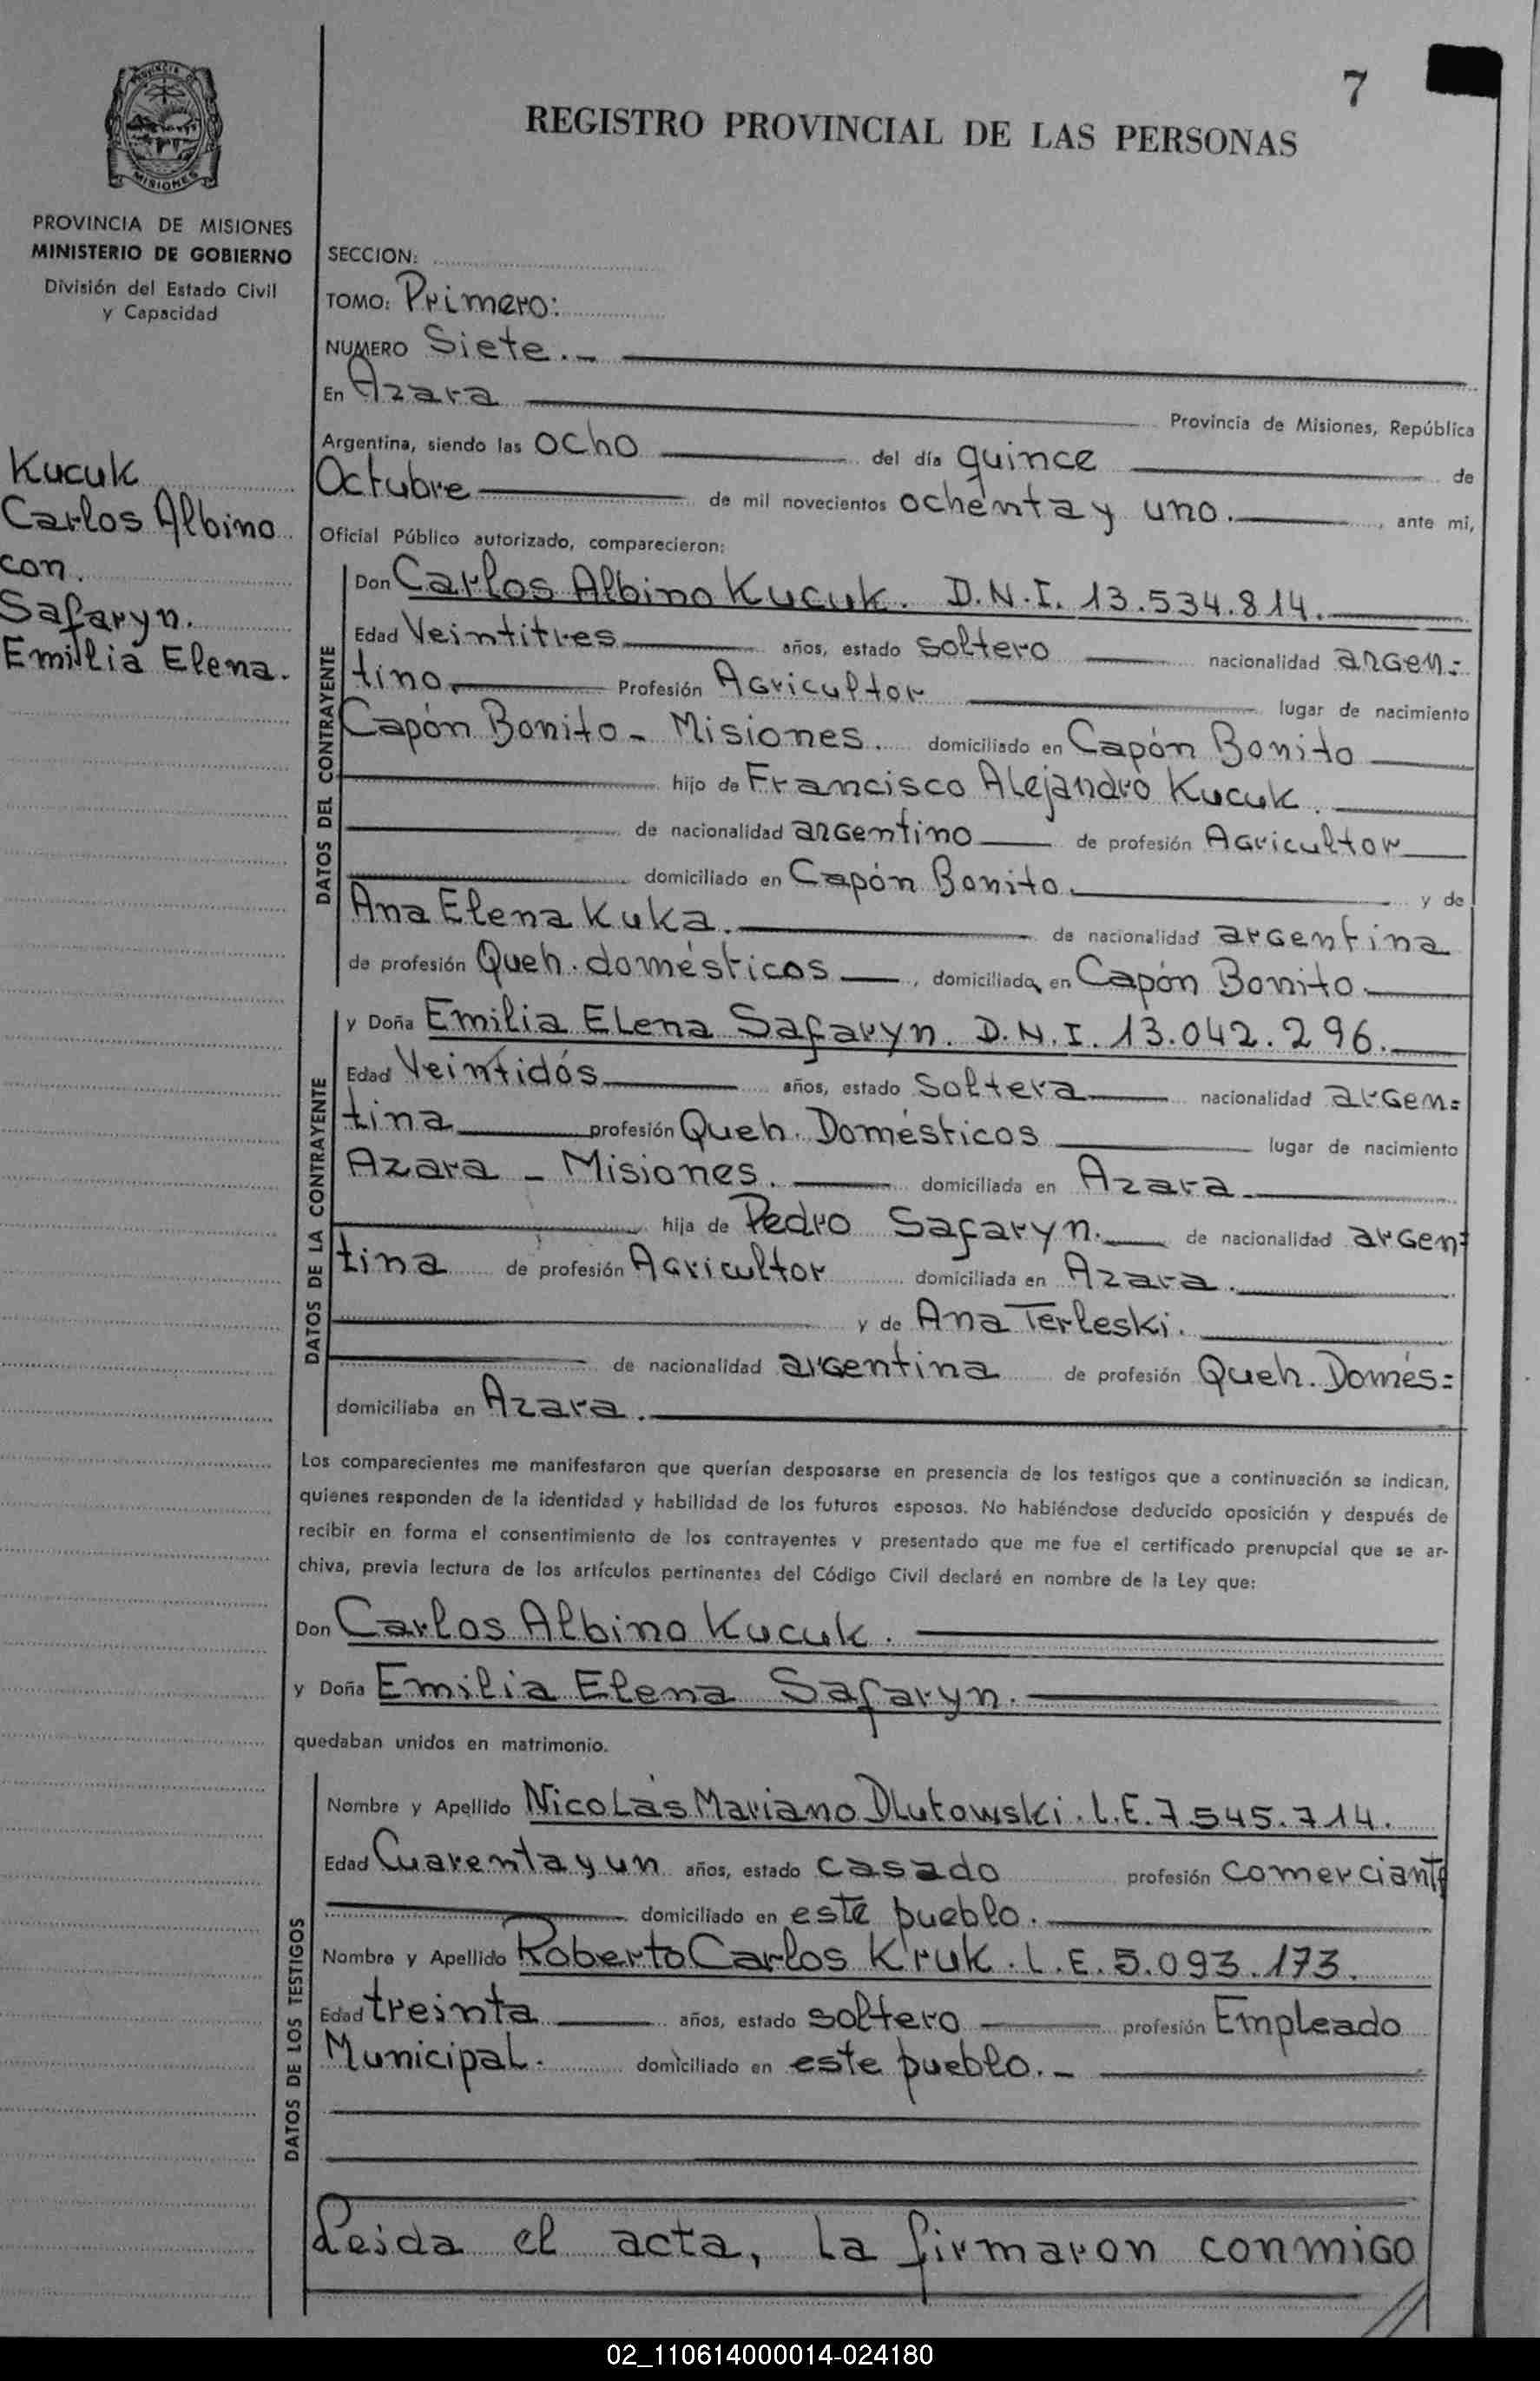 7
REGISTRO PROVINCIAL DE LAS PERSONAS
PROVINCIA DE
MISIONES
PROVINCIA DE MISIONES
MINISTERIO DE GOBIERNO
División del Estado Civil
y Capacidad
Kucuk
Carlos Albino
con.
Safaryn.
Emilia Elena.
SECCION:
TOMO: Primero:
NUMERO Siete.-
En Azara Provincia de Misiones, República
Argentina, siendo las ocho del día quince de
Octubre de mil novecientos ochenta y uno. , ante mi,
Oficial Público autorizado, comparecieron:
DATOS DEL CONTRAYENTE
Don Carlos Albino Kucuk. D.N.I. 13.534.814.
Edad Veintitres años, estado soltero nacionalidad argen=
tino. Profesión Agricultor lugar de nacimiento
Capón Bonito - Misiones. domiciliado en Capón Bonito
hijo de Francisco Alejandro Kucuk.
de nacionalidad argentino de profesión Agricultor
domiciliado en Capón Bonito. y de
Ana Elena Kuka. de nacionalidad argentina
de profesión Queh. domésticos , domiciliada en Capón Bonito.
DATOS DE LA CONTRAYENTE
y Doña Emilia Elena Safaryn. D.N.I. 13.042.296.
Edad Veintidós años, estado Soltera nacionalidad argen=
tina profesión Queh. Domésticos lugar de nacimiento
Azara - Misiones. domiciliada en Azara
hija de Pedro Safaryn. de nacionalidad argen=
tina de profesión Agricultor domiciliada en Azara.
y de Ana Terleski.
de nacionalidad argentina de profesión Queh. Domés=
domiciliaba en Azara.
Los comparecientes me manifestaron que querían desposarse en presencia de los testigos que a continuación se indican,
quienes responden de la identidad y habilidad de los futuros esposos. No habiéndose deducido oposición y después de
recibir en forma el consentimiento de los contrayentes y presentado que me fue el certificado prenupcial que se ar-
chiva, previa lectura de los artículos pertinentes del Código Civil declaré en nombre de la Ley que:
Don Carlos Albino Kucuk.
y Doña Emilia Elena Safaryn.
quedaban unidos en matrimonio.
DATOS DE LOS TESTIGOS
Nombre y Apellido Nicolás Mariano Dlutowski. L.E. 7.545.714.
Edad Cuarenta y un años, estado casado profesión comerciante
domiciliado en este pueblo.
Nombre y Apellido Roberto Carlos Kruk. L.E. 5.093.173.
Edad treinta años, estado soltero profesión Empleado
Municipal. domiciliado en este pueblo.-
Leida el acta, la firmaron conmigo
02_110614000014-024180